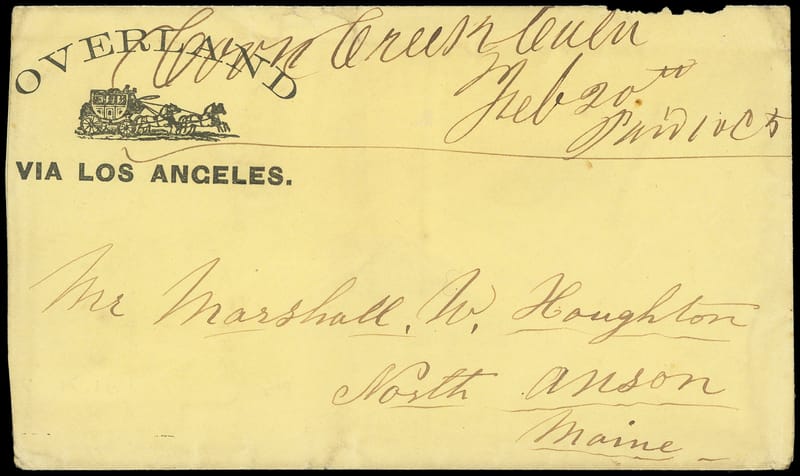 OVERLAND
VIA LOS ANGELES.
Creek Cala
Feb 20th
Paid 10 Cts
Mr Marshall. W. Houghton
North Anson
Maine